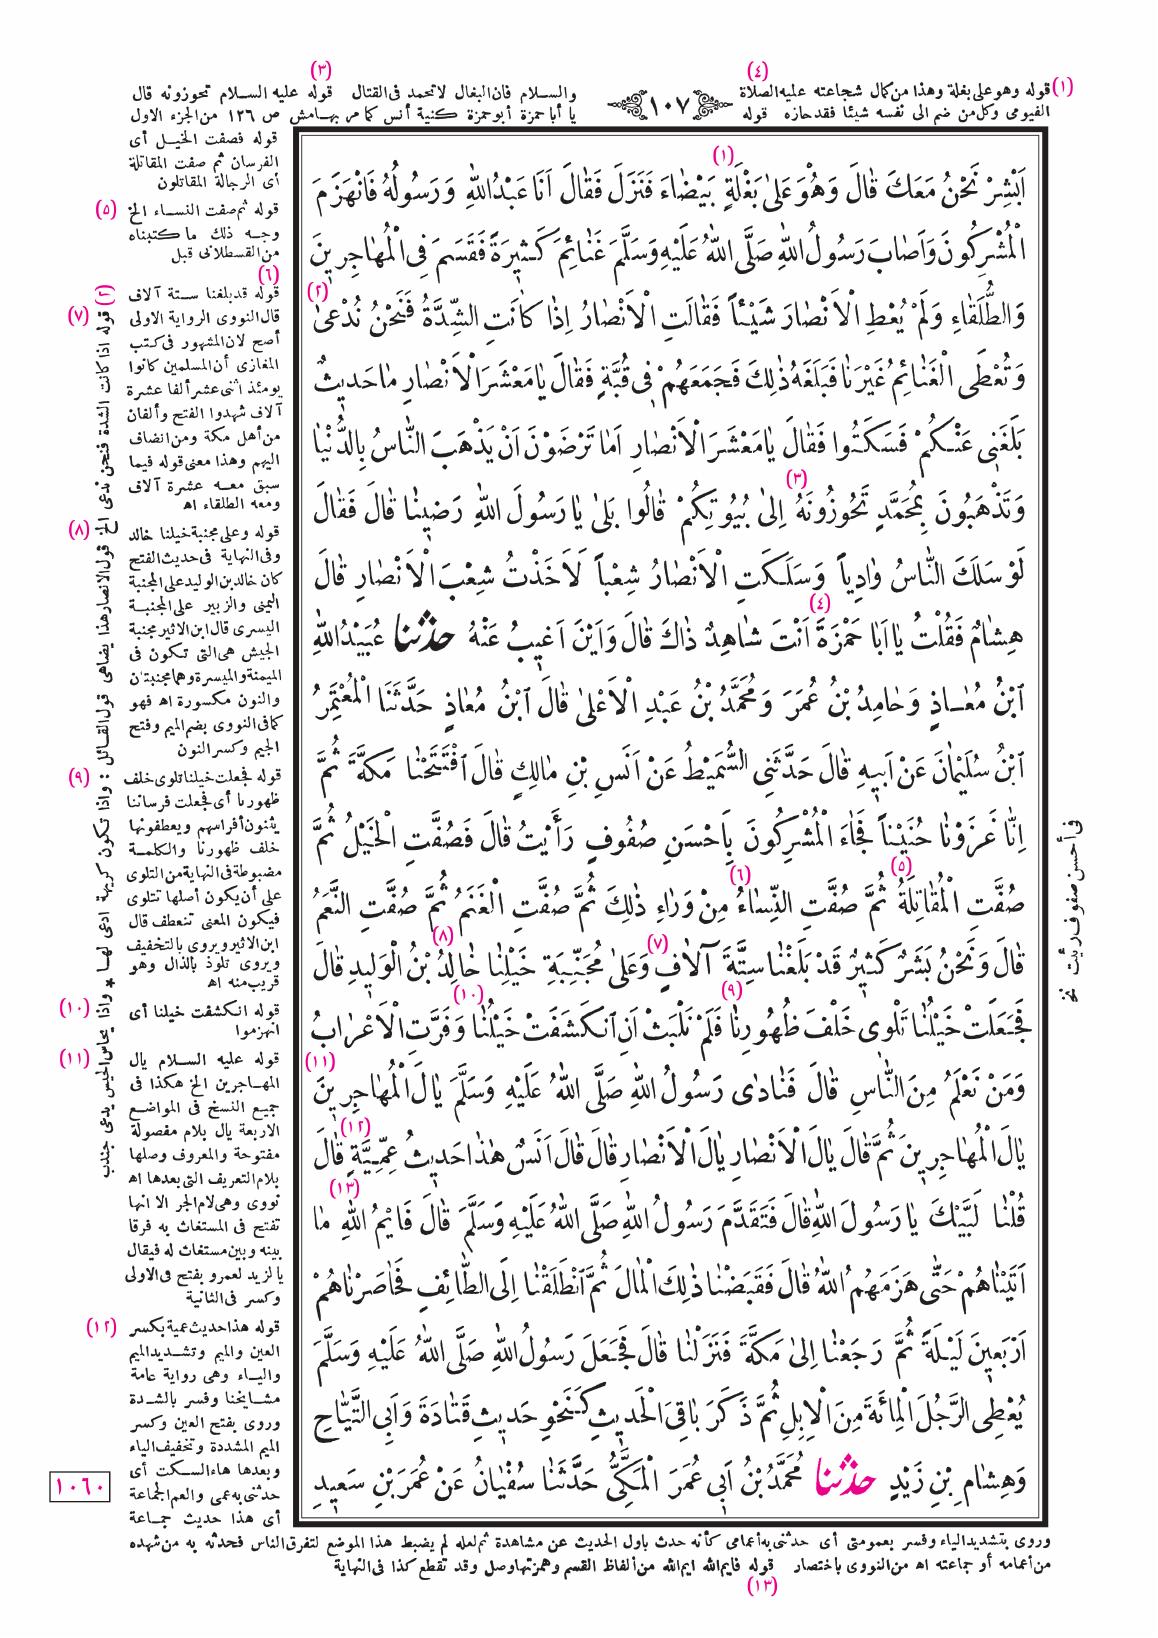 (٣)
(٤)
(١) قوله وهو على بغلة وهذا من كمال شجاعته عليه الصلاة
الفيومى وكل من ضم الى نفسه شيئا فقد حازه قوله
١٠٧
والسلام فان البغال لا تحمد فى القتال قوله عليه السلام تحوزونه قال
يا أبا حمزة أبو حمزة كنية أنس كما مر بهامش ص ١٢٦ من الجزء الاول
(١)
اَبْشِرْ نَحْنُ مَعَكَ قَالَ وَهُوَ عَلىٰ بَغْلَةٍ بَيْضَاءَ فَنَزَلَ فَقَالَ اَنَا عَبْدُ اللهِ وَرَسُولُهُ فَانْهَزَمَ
الْمُشْرِكُونَ وَاَصَابَ رَسُولُ اللهِ صَلَّى اللهُ عَلَيْهِ وَسَلَّمَ غَنَائِمَ كَثِيرَةً فَقَسَمَ فِى الْمُهَاجِرِينَ
وَالطُّلَقَاءِ وَلَمْ يُعْطِ الْاَنْصَارَ شَيْئاً فَقَالَتِ الْاَنْصَارُ اِذَا كَانَتِ الشِّدَّةُ فَنَحْنُ نُدْعىٰ (٢)
وَتُعْطَى الْغَنَائِمُ غَيْرَنَا فَبَلَغَهُ ذٰلِكَ فَجَمَعَهُمْ فِى قُبَّةٍ فَقَالَ يَا مَعْشَرَ الْاَنْصَارِ مَا حَدِيثٌ
بَلَغَنِى عَنْكُمْ فَسَكَتُوا فَقَالَ يَا مَعْشَرَ الْاَنْصَارِ اَمَا تَرْضَوْنَ اَنْ يَذْهَبَ النَّاسُ بِالدُّنْيَا
وَتَذْهَبُونَ بِمُحَمَّدٍ تَحُوزُونَهُ (٣) اِلىٰ بُيُوتِكُمْ قَالُوا بَلىٰ يَا رَسُولَ اللهِ رَضِينَا قَالَ فَقَالَ
لَوْ سَلَكَ النَّاسُ وَادِياً وَسَلَكَتِ الْاَنْصَارُ شِعْباً لَاَخَذْتُ شِعْبَ الْاَنْصَارِ قَالَ
هِشَامٌ فَقُلْتُ يَا اَبَا حَمْزَةَ (٤) اَنْتَ شَاهِدٌ ذَاكَ قَالَ وَاَيْنَ اَغِيبُ عَنْهُ حدثنا عُبَيْدُ اللهِ
ابْنُ مُعَاذٍ وَحَامِدُ بْنُ عُمَرَ وَمُحَمَّدُ بْنُ عَبْدِ الْاَعْلىٰ قَالَ ابْنُ مُعَاذٍ حَدَّثَنَا الْمُعْتَمِرُ
ابْنُ سُلَيْمَانَ عَنْ اَبِيهِ قَالَ حَدَّثَنِى السُّمَيْطُ عَنْ اَنَسِ بْنِ مَالِكٍ قَالَ افْتَتَحْنَا مَكَّةَ ثُمَّ
اِنَّا غَزَوْنَا حُنَيْناً فَجَاءَ الْمُشْرِكُونَ بِاَحْسَنِ صُفُوفٍ رَأَيْتُ قَالَ فَصُفَّتِ الْخَيْلُ ثُمَّ
صُفَّتِ الْمُقَاتِلَةُ (٥) ثُمَّ صُفَّتِ النِّسَاءُ (٦) مِنْ وَرَاءِ ذٰلِكَ ثُمَّ صُفَّتِ الْغَنَمُ ثُمَّ صُفَّتِ النَّعَمُ
قَالَ وَنَحْنُ بَشَرٌ كَثِيرٌ قَدْ بَلَغْنَا سِتَّةَ آلَافٍ (٧) وَعَلىٰ مُجَنِّبَةِ خَيْلِنَا (٨) خَالِدُ بْنُ الْوَلِيدِ قَالَ
فَجَعَلَتْ خَيْلُنَا تَلْوِى خَلْفَ ظُهُورِنَا (٩) فَلَمْ نَلْبَثْ اَنِ انْكَشَفَتْ خَيْلُنَا (١٠) وَفَرَّتِ الْاَعْرَابُ
وَمَنْ نَعْلَمُ مِنَ النَّاسِ قَالَ فَنَادىٰ رَسُولُ اللهِ صَلَّى اللهُ عَلَيْهِ وَسَلَّمَ يَالَ الْمُهَاجِرِينَ (١١)
يَالَ الْمُهَاجِرِينَ ثُمَّ قَالَ يَالَ الْاَنْصَارِ يَالَ الْاَنْصَارِ قَالَ قَالَ اَنَسٌ هٰذَا حَدِيثُ عِمِّيَّةٍ (١٢) قَالَ
قُلْنَا لَبَّيْكَ يَا رَسُولَ اللهِ قَالَ فَتَقَدَّمَ رَسُولُ اللهِ صَلَّى اللهُ عَلَيْهِ وَسَلَّمَ قَالَ فَايْمُ اللهِ (١٣) مَا
اَتَيْنَاهُمْ حَتَّى هَزَمَهُمُ اللهُ قَالَ فَقَبَضْنَا ذٰلِكَ الْمَالَ ثُمَّ انْطَلَقْنَا اِلَى الطَّائِفِ فَحَاصَرْنَاهُمْ
اَرْبَعِينَ لَيْلَةً ثُمَّ رَجَعْنَا اِلىٰ مَكَّةَ فَنَزَلْنَا قَالَ فَجَعَلَ رَسُولُ اللهِ صَلَّى اللهُ عَلَيْهِ وَسَلَّمَ
يُعْطِى الرَّجُلَ الْمِائَةَ مِنَ الْاِبِلِ ثُمَّ ذَكَرَ بَاقِىَ الْحَدِيثِ كَنَحْوِ حَدِيثِ قَتَادَةَ وَاَبِى التَّيَّاحِ
وَهِشَامِ بْنِ زَيْدٍ حدثنا مُحَمَّدُ بْنُ اَبِى عُمَرَ الْمَكِّىُّ حَدَّثَنَا سُفْيَانُ عَنْ عُمَرَ بْنِ سَعِيدِ
فى أحسن صفوف رئيت نخ
قوله فصفت الخيل أى
الفرسان ثم صفت المقاتلة
أى الرجالة المقاتلون
(٥) قوله ثم صفت النساء الخ
وجه ذلك ما كتبناه
من القسطلانى قبل
(٦)
قوله قد بلغنا ستة آلاف
(٧) قال النووى الرواية الاولى
أصح لان المشهور فى كتب
المغازى أن المسلمين كانوا
يومئذ اثنى عشر ألفا عشرة
آلاف شهدوا الفتح وألفان
من أهل مكة ومن انضاف
اليهم وهذا معنى قوله فيما
سبق معه عشرة آلاف
ومعه الطلقاء اه
(٨) قوله وعلى مجنبة خيلنا خالد
وفى النهاية فى حديث الفتح
كان خالد بن الوليد على المجنبة
اليمنى والزبير على المجنبة
اليسرى قال ابن الاثير مجنبة
الجيش هى التى تكون فى
الميمنة والميسرة وهما مجنبتان
والنون مكسورة اه فهو
كما فى النووى بضم الميم وفتح
الجيم وكسر النون
(٩) قوله فجعلت خيلنا تلوى خلف
ظهورنا أى فجعلت فرساننا
يثنون أفراسهم ويعطفونها
خلف ظهورنا والكلمة
مضبوطة فى النهاية من التلوى
على أن يكون أصلها تتلوى
فيكون المعنى تنعطف قال
ابن الاثير ويروى بالتخفيف
ويروى تلوذ بالذال وهو
قريب منه اه
(١٠) قوله انكشفت خيلنا أى
انهزموا
(١١) قوله عليه السلام يال
المهاجرين الخ هكذا فى
جميع النسخ فى المواضع
الاربعة يال بلام مفصولة
مفتوحة والمعروف وصلها
بلام التعريف التى بعدها اه
نووى وهى لام الجر الا انها
تفتح فى المستغاث به فرقا
بينه وبين مستغاث له فيقال
يا لزيد لعمرو بفتح فى الاولى
وكسر فى الثانية
(١٢) قوله هذا حديث عمية بكسر
العين والميم وتشديد الميم
والياء وهى رواية عامة
مشايخنا وفسر بالشدة
وروى بفتح العين وكسر
الميم المشددة وتخفيف الياء
وبعدها هاء السكت أى
حدثنى به عمى والعم الجماعة
أى هذا حديث جماعة
(٢) قوله اذا كانت الشدة فنحن ندعى الخ قول الانصار هذا يضاهى قول القائل : واذا تكون كريهة ادعى لها * واذا يحاس الحيس يدعى جندب
١٠٦٠
وروى بتشديد الياء وفسر بعمومتى أى حدثنى به أعمامى كأنه حدث باول الحديث عن مشاهدة ثم لعله لم يضبط هذا الموضع لتفرق الناس فحدثه به من شهده
من أعمامه أو جماعته اه من النووى باختصار قوله فايم الله ايم الله من ألفاظ القسم وهمزتها وصل وقد تقطع كذا فى النهاية
(١٣)